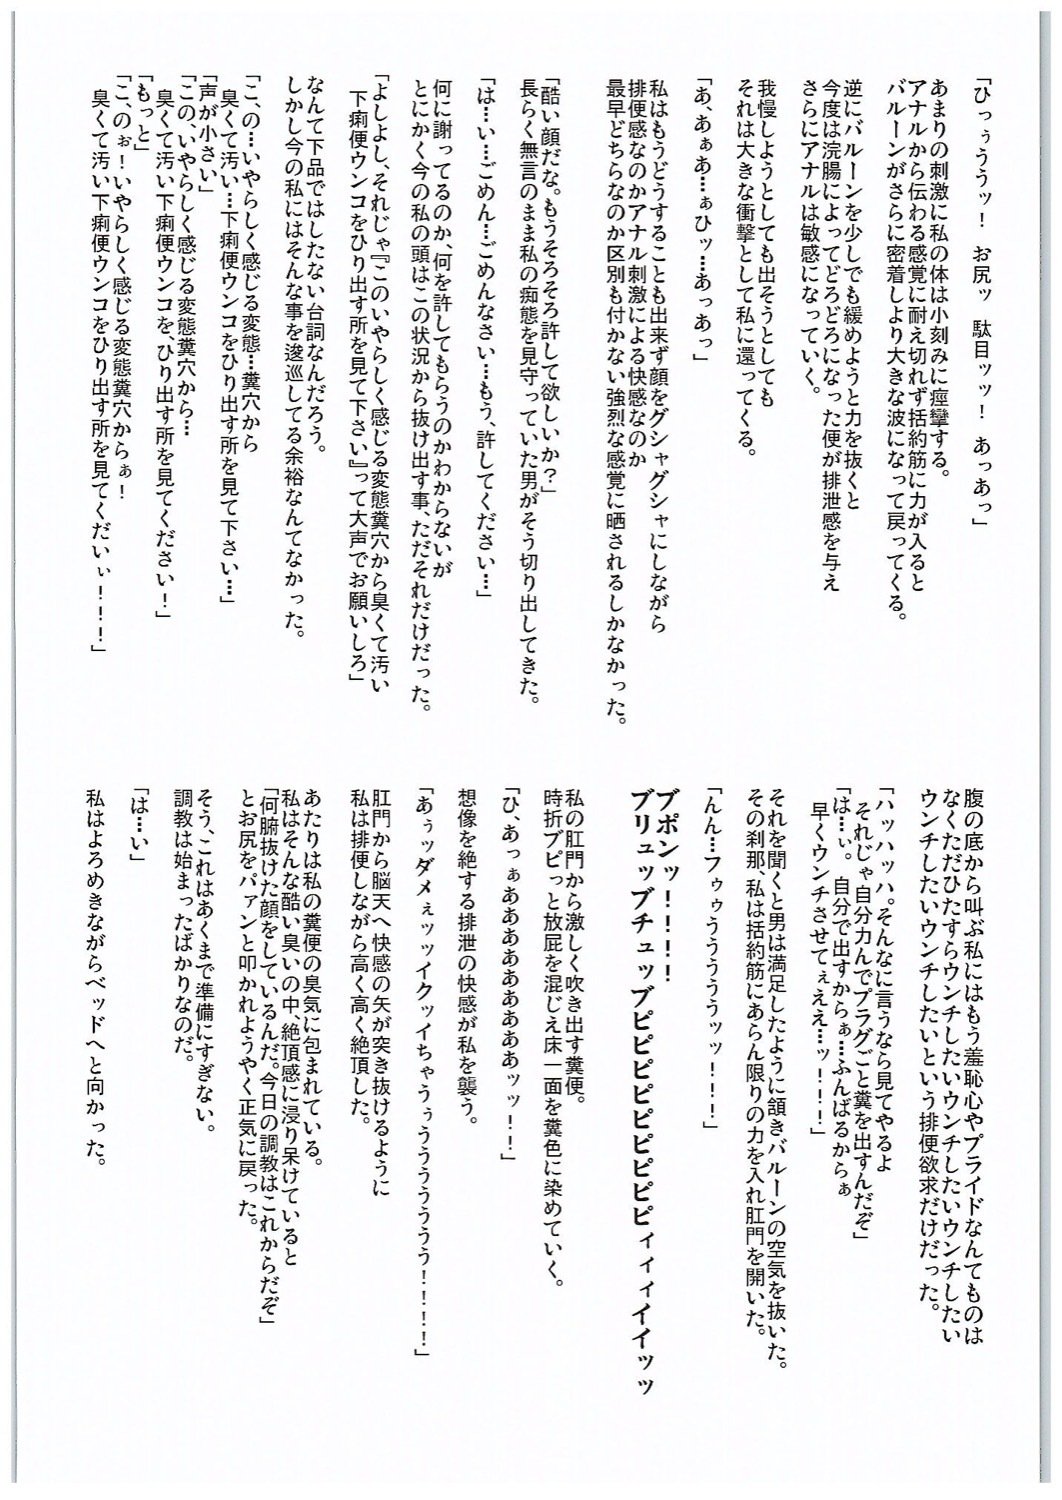 「ひっぅううッ！　お尻ッ　駄目ッッ！　あっあっ」
あまりの刺激に私の体は小刻みに痙攣する。
アナルから伝わる感覚に耐え切れず括約筋に力が入ると
バルーンがさらに密着しより大きな波になって戻ってくる。
逆にバルーンを少しでも緩めようと力を抜くと
今度は浣腸によってどろどろになった便が排泄感を与え
さらにアナルは敏感になっていく。
我慢しようとしても出そうとしても
それは大きな衝撃として私に還ってくる。
「あ、あぁあ…ぁひッ…あっあっ」
私はもうどうすることも出来ず顔をグシャグシャにしながら
排便感なのかアナル刺激による快感なのか
最早どちらなのか区別も付かない強烈な感覚に晒されるしかなかった。
「酷い顔だな。もうそろそろ許して欲しいか？」
長らく無言のまま私の痴態を見守っていた男がそう切り出してきた。
「は…い…ごめん…ごめんなさい…もう、許してください…」
何に謝ってるのか、何を許してもらうのかわからないが
とにかく今の私の頭はこの状況から抜け出す事、ただそれだけだった。
「よしよし、それじゃ『このいやらしく感じる変態糞穴から臭くて汚い
下痢便ウンコをひり出す所を見て下さい』って大声でお願いしろ」
なんて下品ではしたない台詞なんだろう。
しかし今の私にはそんな事を逡巡してる余裕なんてなかった。
「こ、の…いやらしく感じる変態…糞穴から
臭くて汚い…下痢便ウンコをひり出す所を見て下さい…」
「声が小さい」
「この、いやらしく感じる変態糞穴から…
臭くて汚い下痢便ウンコを、ひり出す所を見てください！」
「もっと」
「こ、のぉ！いやらしく感じる変態糞穴からぁ！
臭くて汚い下痢便ウンコをひり出す所を見てくだいぃ！！！」
腹の底から叫ぶ私にはもう羞恥心やプライドなんてものは
なくただひたすらウンチしたいウンチしたいウンチしたい
ウンチしたいウンチしたいという排便欲求だけだった。
「ハッハッハ。そんなに言うなら見てやるよ
それじゃ自分力んでプラグごと糞を出すんだぞ」
「は…ぃ。自分で出すからぁ…ふんばるからぁ
早くウンチさせてぇええ…ッ！！！」
それを聞くと男は満足したように頷きバルーンの空気を抜いた。
その刹那、私は括約筋にあらん限りの力を入れ肛門を開いた。
「んん…フゥゥうううううッッ！！！」
ブポンッ！！！！
ブリュッブチュッブピピピピピピピピピィィィイイッッ
私の肛門から激しく吹き出す糞便。
時折ブピっと放屁を混じえ床一面を糞色に染めていく。
「ひ、あっぁああああああああッッ！！」
想像を絶する排泄の快感が私を襲う。
「あぅッダメぇッッイクッイちゃうぅうううううう！！！！」
肛門から脳天へ快感の矢が突き抜けるように
私は排便しながら高く高く絶頂した。
あたりは私の糞便の臭気に包まれている。
私はそんな酷い臭いの中、絶頂感に浸り呆けていると
「何腑抜けた顔をしているんだ。今日の調教はこれからだぞ」
とお尻をパァンと叩かれようやく正気に戻った。
そう、これはあくまで準備にすぎない。
調教は始まったばかりなのだ。
「は…い」
私はよろめきながらベッドへと向かった。